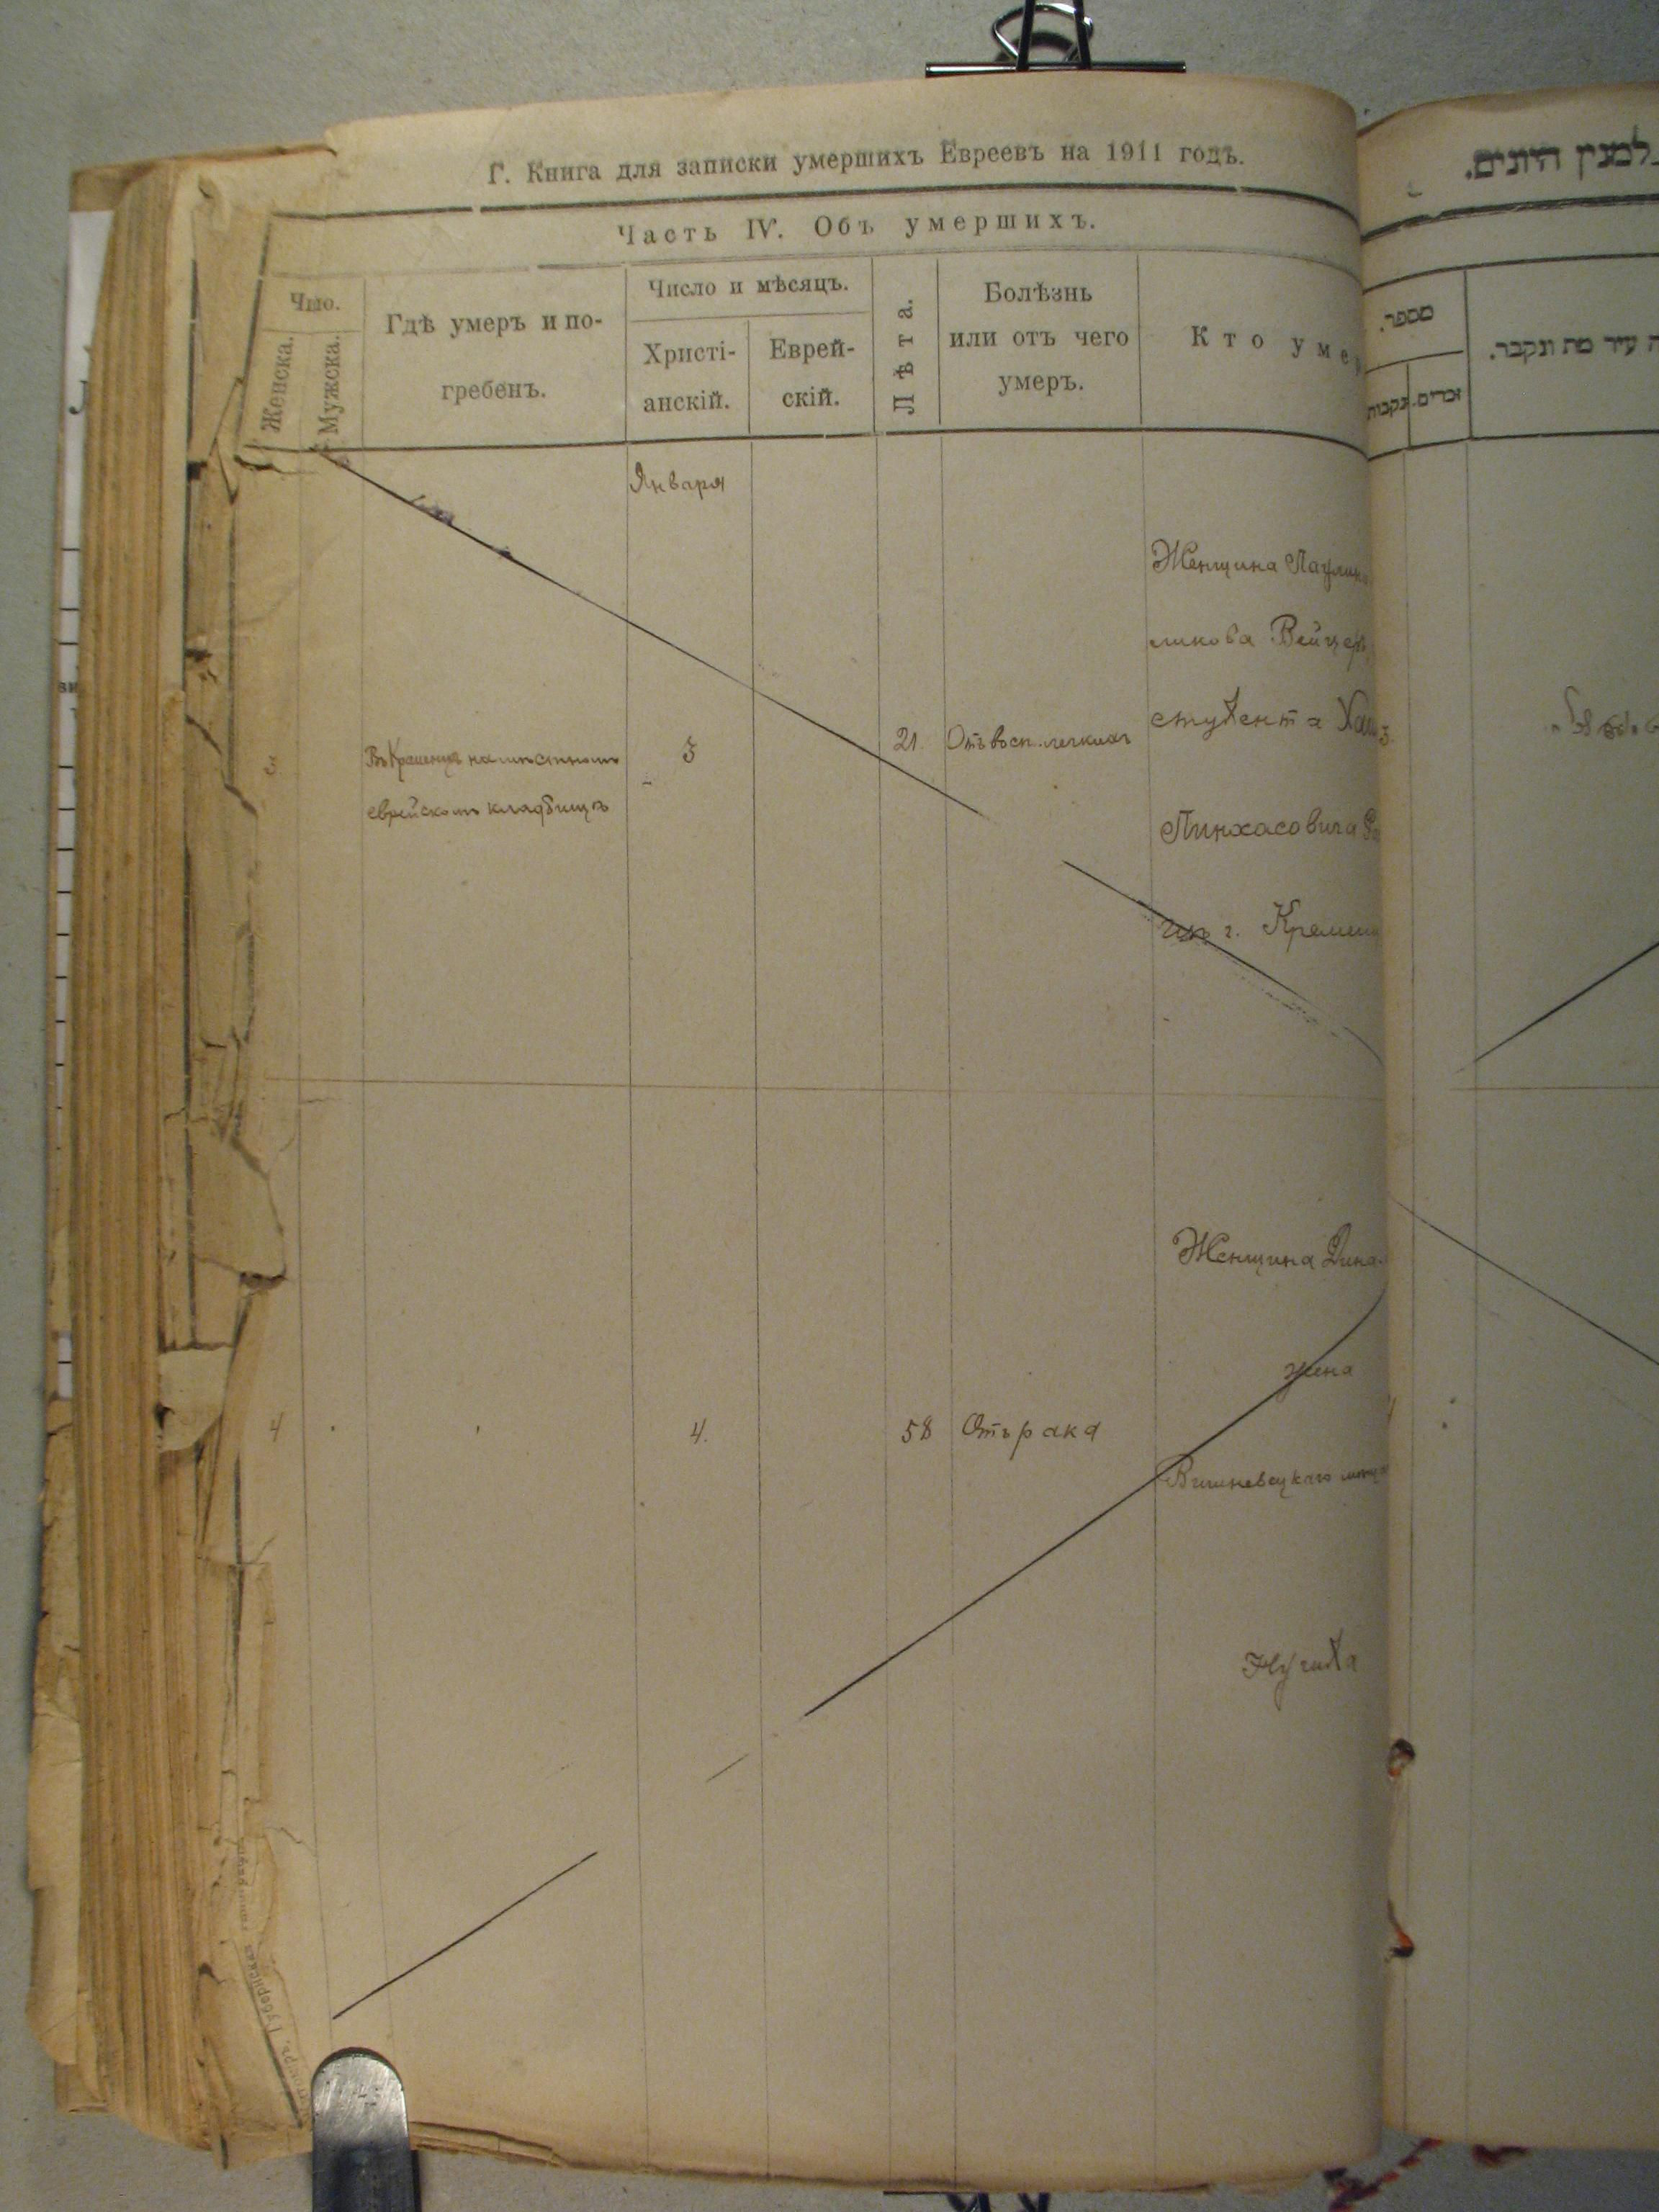 Г. Книга для записки умершихъ Евреевъ на 1911 годъ.
Часть IV. Объ умершихъ.
Чио.
Женска.
Мужска.
Гдѣ умеръ и по-
гребенъ.
Число и мѣсяцъ.
Христі-
анскій.
Еврей-
скій.
Лѣта.
Болѣзнь
или отъ чего
умеръ.
Кто уме
Января
3
Въ Кременцѣ на мѣстномъ
еврейскомъ кладбищѣ
3
21.
Отъ восп. легкихъ
Женщина
ликова Вейцер
студента Хаи
Пинхасовича
г. Кремен
4
4.
58
Отъ рака
Женщина Дина
жена
Вишневецкаго мещ
למנין היונים.
מספר.
זכרים.
נקבות
עיר מת ונקבר.